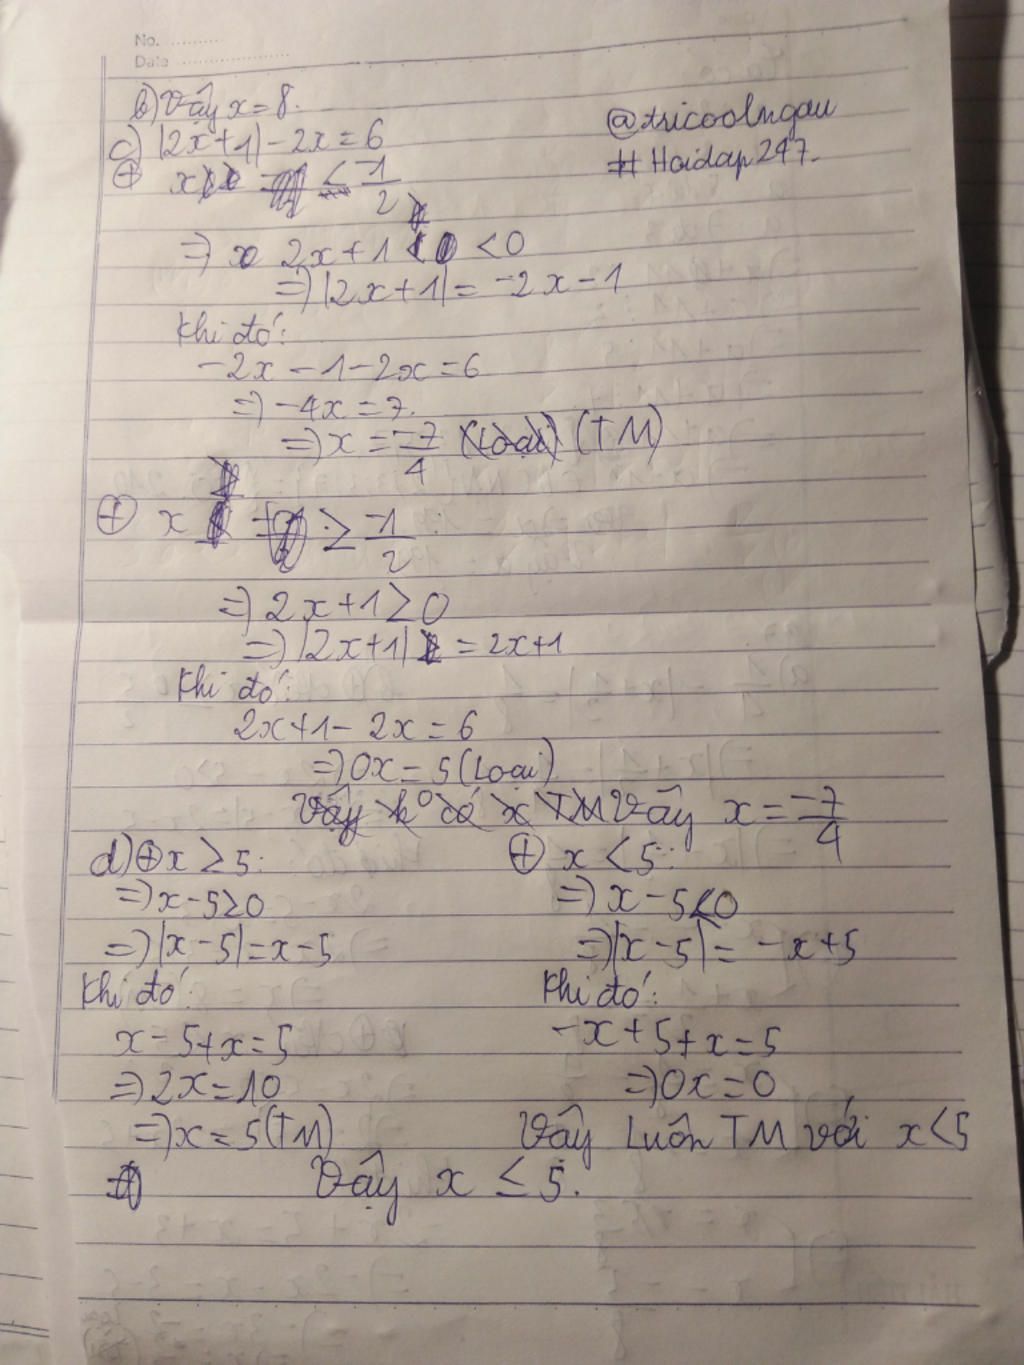 No. ..........
Date ....................
b) Vậy x = 8.
@tricoolngau
c) |2x+1| - 2x = 6
# Hoidap247.
⊕ x < -1/2
=> 2x + 1 < 0
=> |2x+1| = -2x - 1
Khi đó:
-2x - 1 - 2x = 6
=> -4x = 7.
=> x = -7/4 (Loại) (TM)
⊕ x ≥ -1/2:
=> 2x + 1 ≥ 0
=> |2x+1| = 2x+1
Khi đó:
2x+1 - 2x = 6
=> 0x = 5 (Loại)
Vậy k° có x TM Vậy x = -7/4
d) ⊕ x ≥ 5:
=> x - 5 ≥ 0
=> |x - 5| = x - 5
Khi đó:
x - 5 + x = 5
=> 2x = 10
=> x = 5 (TM)
⊕ x < 5:
=> x - 5 < 0
=> |x - 5| = -x + 5
Khi đó:
-x + 5 + x = 5
=> 0x = 0
Vậy Luôn TM với x < 5
Vậy x ≤ 5.